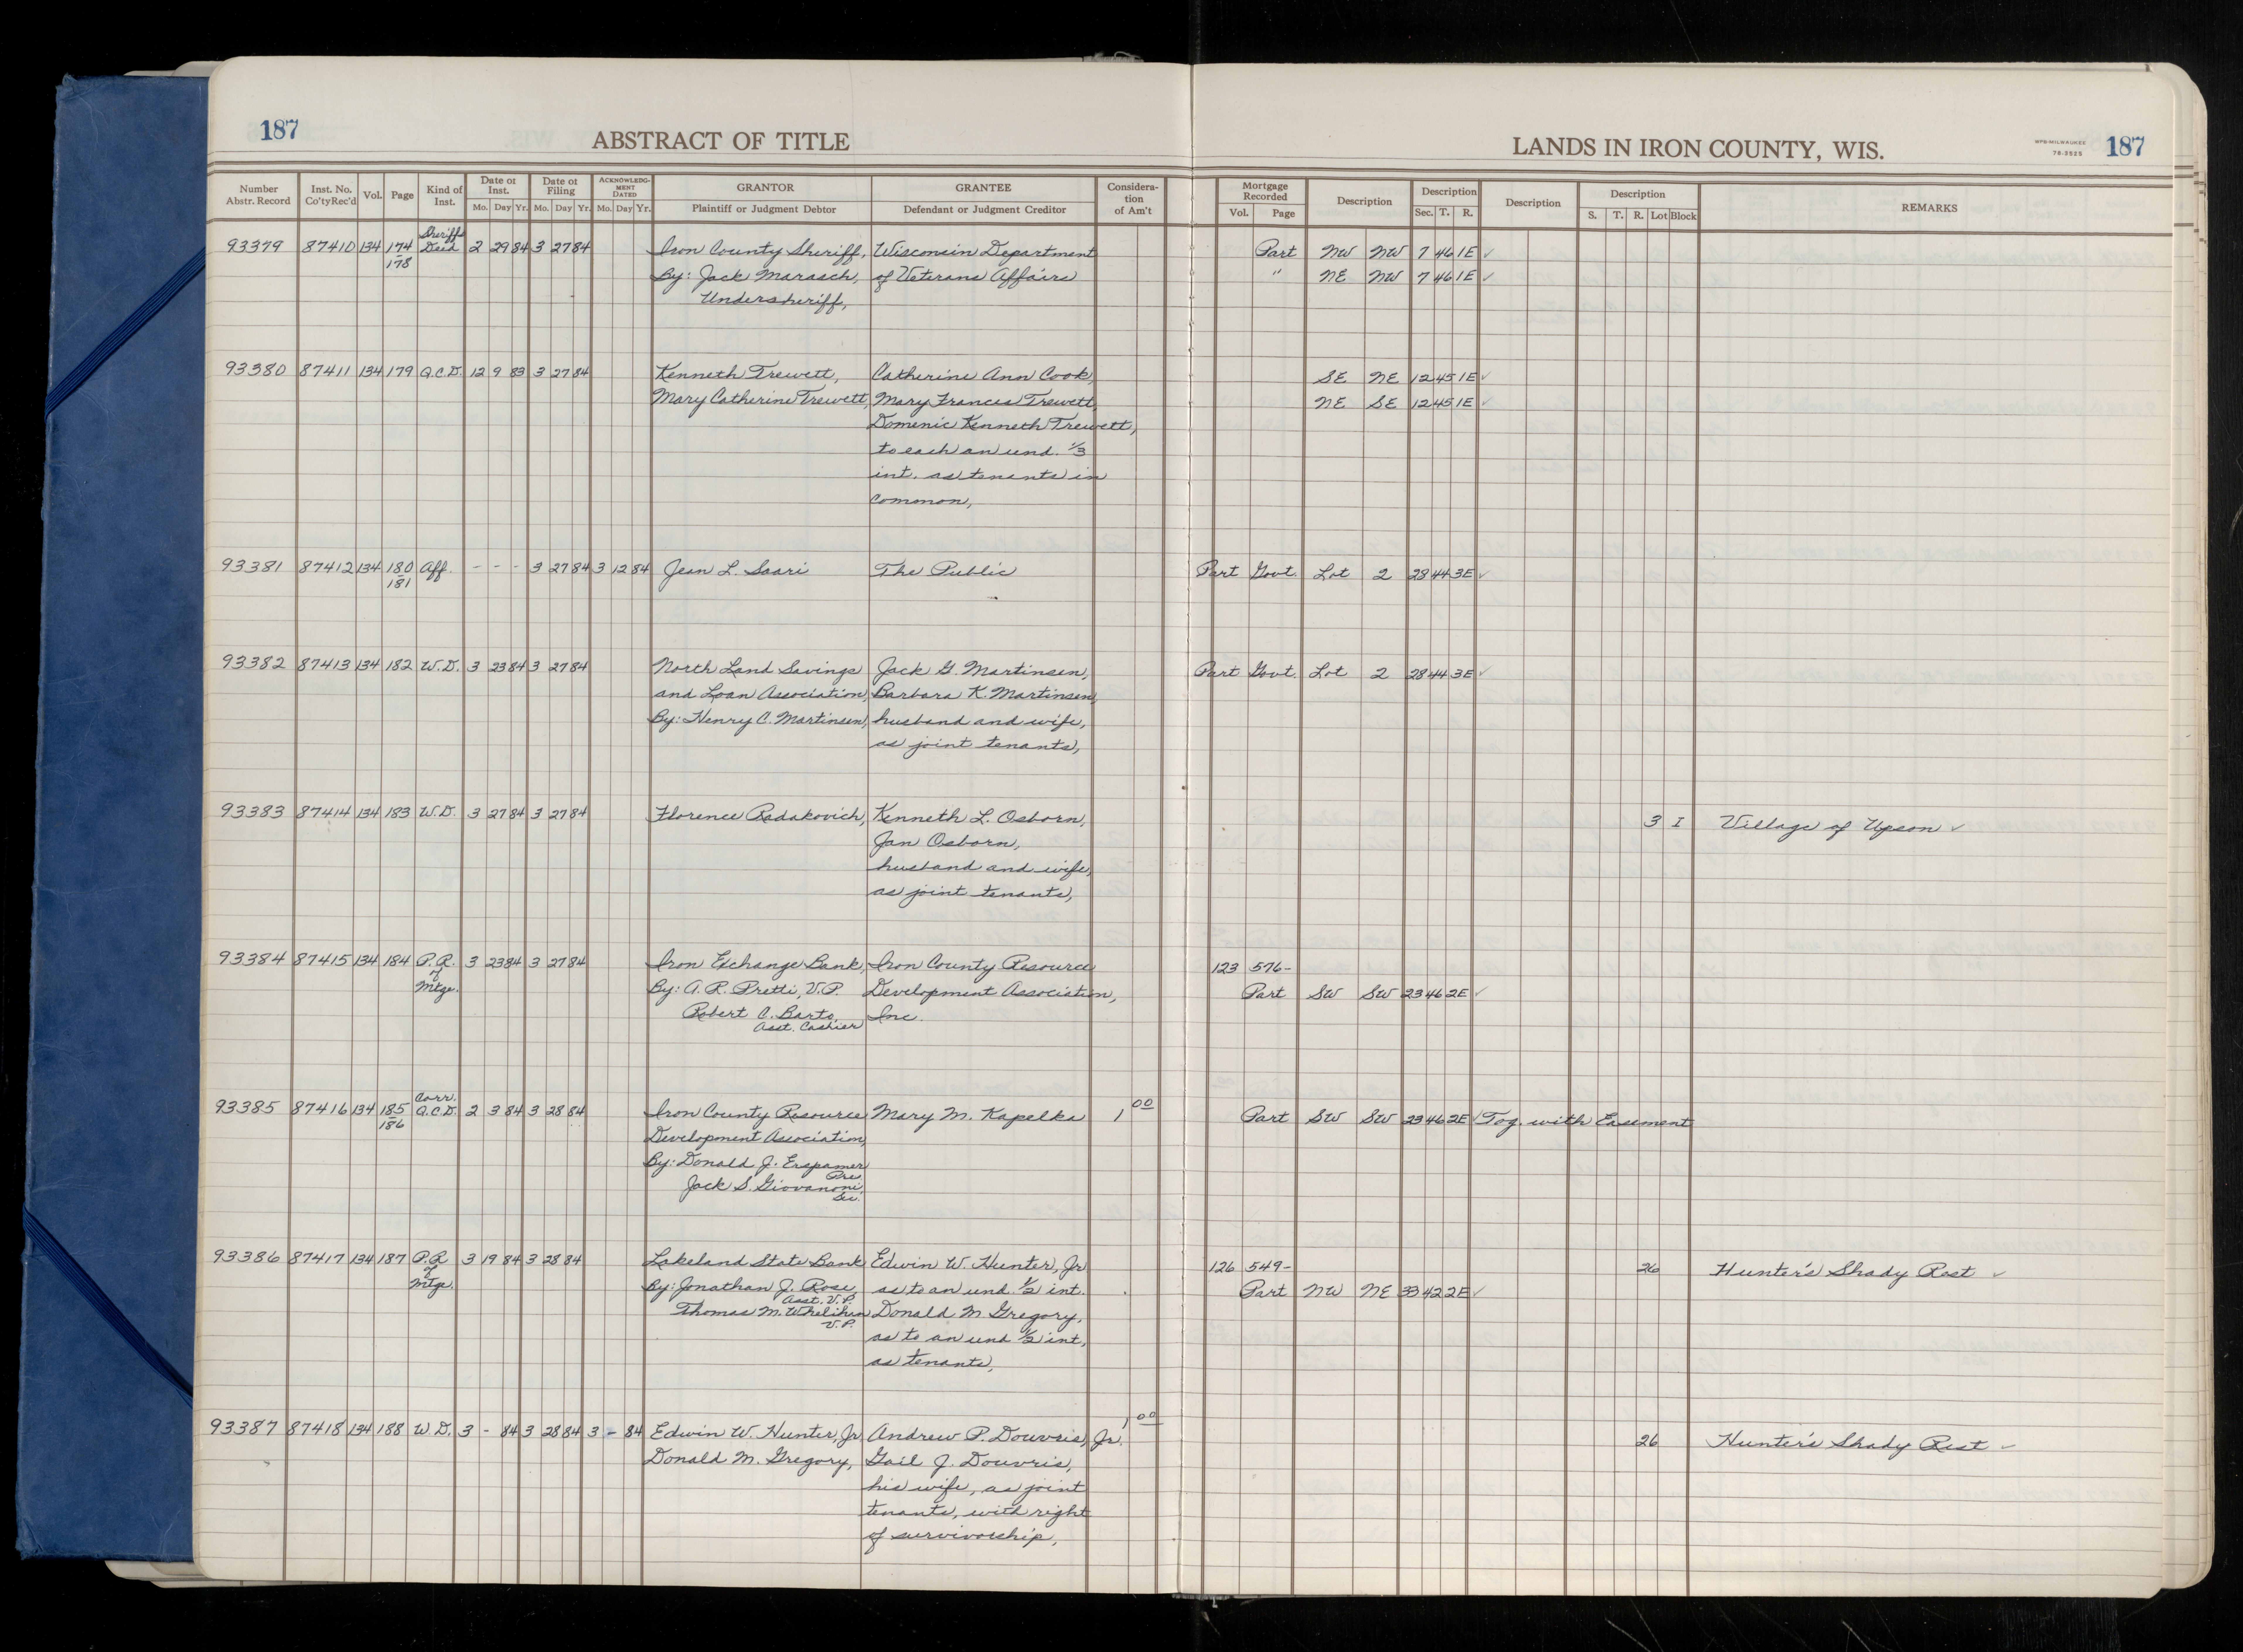 187
ABSTRACT OF TITLE
LANDS IN IRON COUNTY, WIS.
WPB-MILWAUKEE
78-3525
187
Number Abstr. Record | Inst. No. Co'ty Rec'd | Vol. | Page | Kind of Inst. | Date of Inst. Mo. Day Yr. | Date of Filing Mo. Day Yr. | ACKNOWLEDGMENT DATED Mo. Day Yr. | GRANTOR Plaintiff or Judgment Debtor | GRANTEE Defendant or Judgment Creditor | Consideration of Am't | Mortgage Recorded Vol. Page | Description | Description Sec. T. R. | Description | Description S. T. R. Lot Block | REMARKS
Sheriff
93379 87410 134 174 Deed 2 29 84 3 27 84 Iron County Sheriff, Wisconsin Department Part NW NW 7 46 1E ✓
178 By: Jack Marasch, of Veterans Affairs " NE NW 7 46 1E ✓
Undersheriff,
93380 87411 134 179 Q.C.D. 12 9 83 3 27 84 Kenneth Trewett, Catherine Ann Cook, SE NE 12 45 1E ✓
Mary Catherine Trewett, Mary Frances Trewett, NE SE 12 45 1E ✓
Domenic Kenneth Trewett,
to each an und. 1/3
int. as tenants in
common,
93381 87412 134 180 Aff. - - - 3 27 84 3 12 84 Jean L. Saari The Public Part Govt. Lot 2 28 44 3E ✓
181
93382 87413 134 182 W.D. 3 23 84 3 27 84 North Land Savings Jack G. Martinsen, Part Govt. Lot 2 28 44 3E ✓
and Loan Association, Barbara K. Martinsen,
By: Henry C. Martinsen, husband and wife,
as joint tenants,
93383 87414 134 183 W.D. 3 27 84 3 27 84 Florence Radakovich, Kenneth L. Osborn, 3 I Village of Upson ✓
Jan Osborn,
husband and wife,
as joint tenants,
93384 87415 134 184 P.R. 3 23 84 3 27 84 Iron Exchange Bank, Iron County Resource 123 576-
of
Mtge. By: A. R. Pretti, V.P. Development Association, Part SW SW 23 46 2E ✓
Robert C. Barto, Inc.
Asst. Cashier
Corr.
93385 87416 134 185 Q.C.D. 2 3 84 3 28 84 Iron County Resource Mary M. Kapelka 1 00 Part SW SW 23 46 2E ✓ Tog. with Easement
186 Development Association
By: Donald J. Erspamer
Pre.
Jack S. Giovanoni,
Sec.
93386 87417 134 187 P.R. 3 19 84 3 28 84 Lakeland State Bank Edwin W. Hunter, Jr 126 549- 26 Hunter's Shady Rest ✓
of
Mtge. By: Jonathan J. Rose, as to an und. 1/2 int. Part NW NE 33 42 2E ✓
Asst. V.P.
Thomas M. Donald M Gregory,
V.P.
as to an und 1/2 int,
as tenants,
93387 87418 134 188 W.D. 3 - 84 3 28 84 3 - 84 Edwin W. Hunter, Jr Andrew P. Douvris, Jr. 1 00 26 Hunter's Shady Rest ✓
Donald M. Gregory, Gail J. Douvris,
his wife, as joint
tenants, with right
of survivorship,